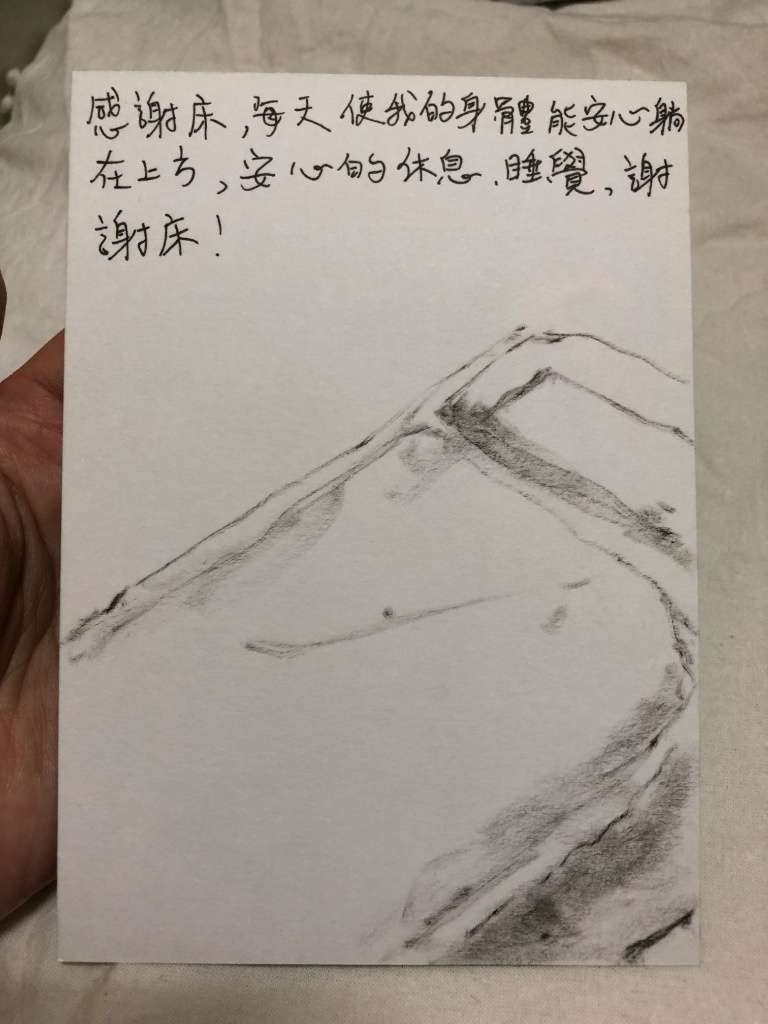 感謝床,每天使我的身體能安心躺
在上方,安心的休息、睡覺,謝
謝床!